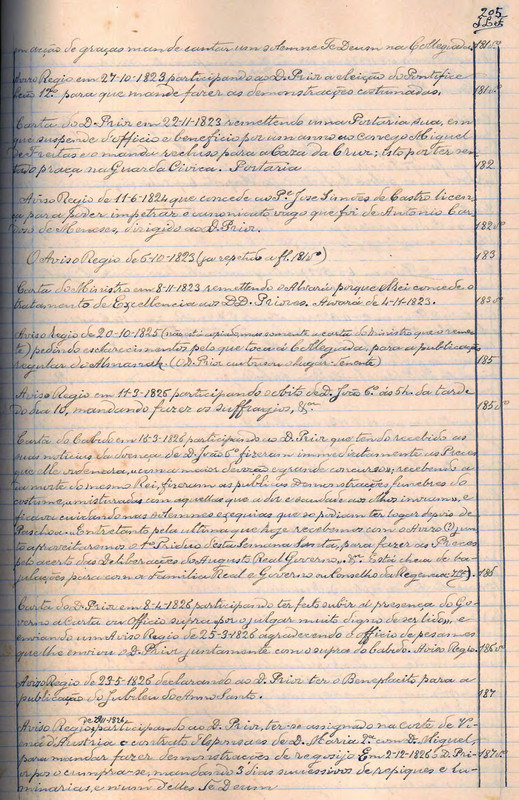 205
em acção de graças mande cantar um solemne Te Deum na Collegiada 181vº
Aviso Regio em 27-10-1823 participando ao D. Prior a eleição do Pontifice
Leão 12º para que mande fazer as demonstrações costumadas. 181vº
Carta do D. Prior em 22-11-1823 remettendo uma Portaria sua, em
que suspende d'officio e beneficio por um anno ao conego Miguel
de Freitas e o manda recluso para a Caza da Cruz; isto por ter sen-
tado praça na Guarda Civica. Portaria 182
Aviso Regio de 11-6-1824 que concede ao Pe José Simões de Castro licen-
ça para poder impetrar o canonicato vago que foi de Antonio Car-
doso de Menezes, dirigido ao D. Prior. 182vº
O Aviso Regio de 6-10-1823 (ja repetido a fl. 181vº) 183
Carta do Ministro em 8-11-1823 remettendo o Alvará porque Elrei concede o
tratamento de Excellencia aos DD. Priores. Alvará de 4-11-1823. 183vº
Aviso Regio de 20-10-1825 (não está copiado, mas somente a carta do Ministro que o reme-
te) pedindo esclarecimentos pelo que toca á Collegiada, para a publicação
regular do Almanak. (O D. Prior construi o lugar-Tenente) 185
Aviso Regio em 11-3-1826 participando o obito de D. João 6º ás 5h. da tarde
do dia 10, mandando fazer os suffragios, &ra 185vº
Carta do Cabido em 15-3-1826 participando ao D. Prior que tendo recebido as
más noticias da doença de D. João 6º fizeram immediatamente as Preces
que elle ordenara, com a maior devoção e grande concurso; recebendo a
da morte do mesmo Rei, fizeram as publicas demonstrações funebres do
costume, misturadas com aquellas que a dor e saudade aos olhos
ficava cuidando nas solemnes exequias que só podiam ter logar depois de
Paschoa. Entretanto pela ultima que hoje recebemos com o Aviso (?) jun-
to aproveitaremos o 1º Triduo d'esta Semana Santa, para fazer as Preces
pelo acerto das Deliberações do Augusto Real Governo, &ra. Está cheia de ba-
julações para com a Familia Real e Governo ou Conselho da Regencia. 186
Carta do D. Prior em 8-4-1826 participando ter feito subir á presença do Go-
verno a Carta ou Officio supra por o julgar muito digno de ser lido, e
enviando um Aviso Regio de 25-3-1826 agradecendo o officio de pesames
que lhe enviou o D. Prior juntamente com o supra do Cabido. Aviso Regio 186vº
Aviso Regio de 23-5-1826 declarando ao D. Prior ter o Beneplacito para a
publicação do Jubileu do Anno Santo. 187
Aviso Regio participando ao D. Prior, ter-se assignado na corte de Vi-
enna d'Austria o contrato d'Esponsaes de D. Maria 2ª com D. Miguel,
para mandar fazer demonstrações de regosijo. Em 2-12-1826 o D. Pri- 187vº
or poz o cumpra-se, mandando 3 dias successivos de repiques e lu-
minarias, e n'um d'elles Te Deum